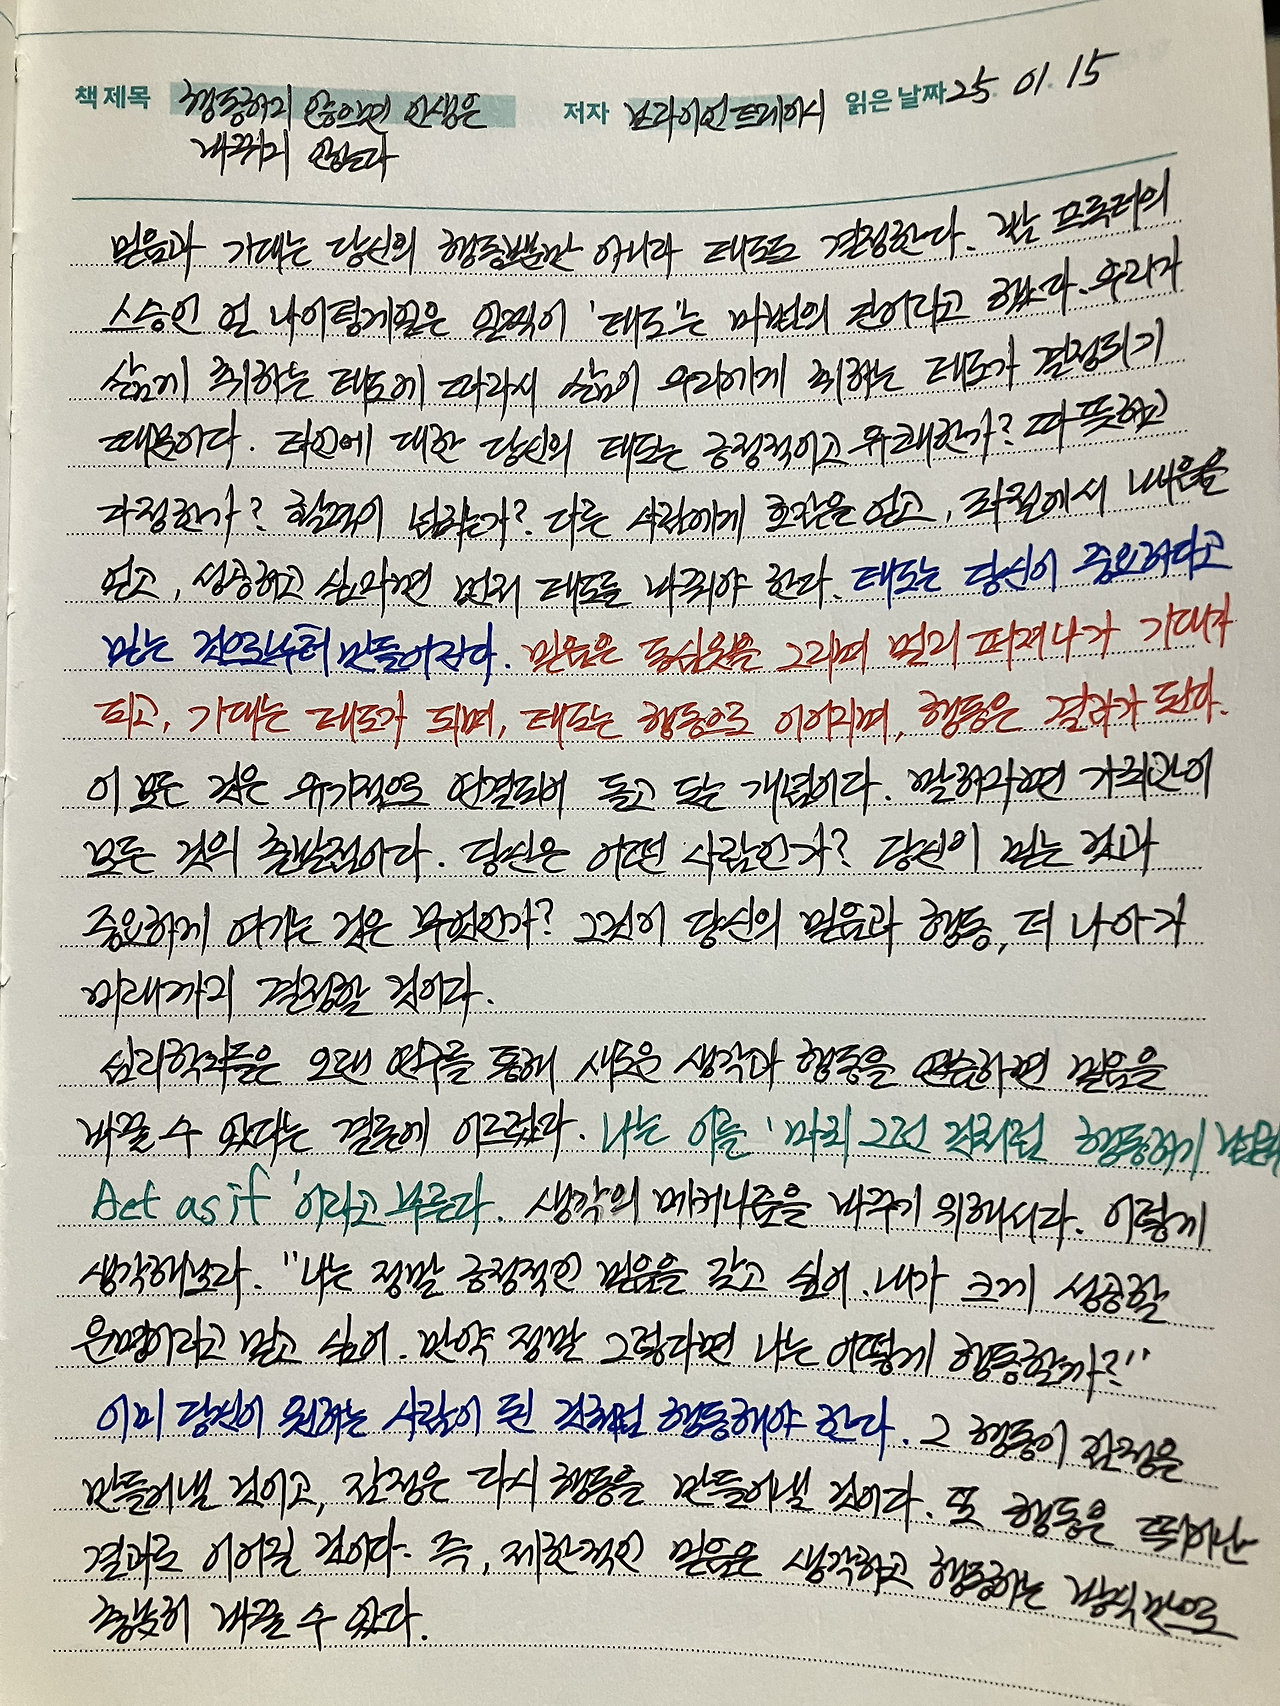 책 제목 행동하지 않으면 인생은 저자 브라이언 트레이시 읽은 날짜 25 01. 15
바뀌지 않는다
믿음과 기대는 당신의 행동뿐만 아니라 태도도 결정한다. 밥 프록터의
스승인 얼 나이팅게일은 일찍이 '태도'는 마법의 단어라고 했다. 우리가
삶에 취하는 태도에 따라서 삶이 우리에게 취하는 태도가 결정되기
때문이다. 타인에 대한 당신의 태도는 긍정적이고 유쾌한가? 따뜻하고
다정한가? 활력이 넘치는가? 다른 사람에게 호감을 얻고, 좌절에서 배움을
얻고, 성공하고 싶다면 먼저 태도를 바꿔야 한다. 태도는 당신이 중요하다고
믿는 것으로부터 만들어진다. 믿음은 동심원을 그리며 멀리 퍼져나가 기대가
되고, 기대는 태도가 되며, 태도는 행동으로 이어지며, 행동은 결과가 된다.
이 모든 것은 유기적으로 연결되어 돌고 도는 개념이다. 말하자면 가치관이
모든 것의 출발점이다. 당신은 어떤 사람인가? 당신이 믿는 것과
중요하게 여기는 것은 무엇인가? 그것이 당신의 믿음과 행동, 더 나아가
미래까지 결정할 것이다.
심리학자들은 오랜 연구를 통해 새로운 생각과 행동을 연습하면 믿음을
바꿀 수 있다는 결론에 이르렀다. 나는 이를 '마치 그런 것처럼 행동하기 법칙
Act as if'이라고 부른다. 생각의 메커니즘을 바꾸기 위해서다. 이렇게
생각해보라. "나는 정말 긍정적인 믿음을 갖고 싶어. 내가 크게 성공할
운명이라고 믿고 싶어. 만약 정말 그렇다면 나는 어떻게 행동할까?"
이미 당신이 원하는 사람이 된 것처럼 행동해야 한다. 그 행동이 감정을
만들어낼 것이고, 감정은 다시 행동을 만들어낼 것이다. 또 행동은 뛰어난
결과로 이어질 것이다. 즉, 제한적인 믿음은 생각하고 행동하는 방식만으로
충분히 바꿀 수 있다.